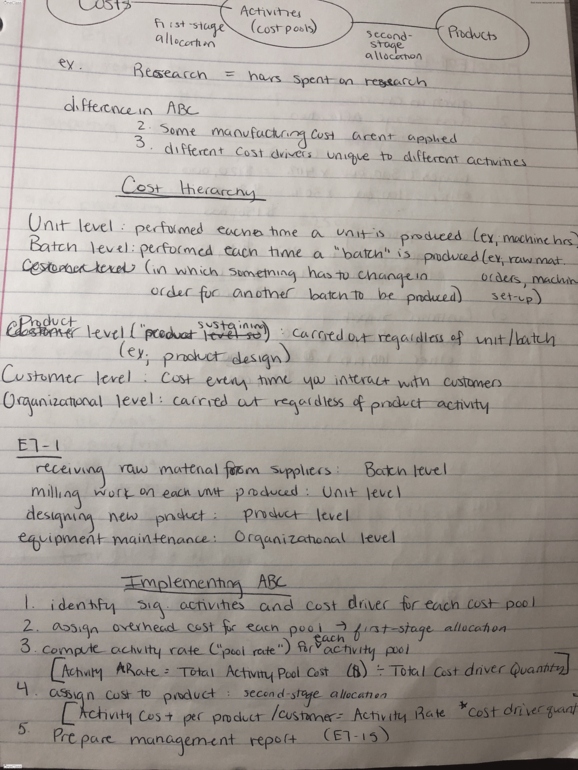 Costs
Activities
(cost pools)
Products
First-stage
allocation
second-
stage
allocation
ex. Research = hours spent on research
difference in ABC
2. Some manufacturing cost arent applied
3. different cost drivers unique to different activities
Cost Hierarchy
Unit level: performed each time a unit is produced (ex, machine hrs)
Batch level: performed each time a "batch" is produced (ex, raw mat.
Customer level (in which something has to change in orders, machin
order for another batch to be produced) set-up)
Product sustaining
Customer level ("product level su) : carried out regardless of unit/batch
(ex; product design)
Customer level : Cost every time you interact with customers
Organizational level: carried out regardless of product activity
E7-1
receiving raw material from suppliers: Batch level
milling work on each unit produced: Unit level
designing new product: product level
equipment maintenance: Organizational level
Implementing ABC
1. identify sig. activities and cost driver for each cost pool
2. assign overhead cost for each pool → first-stage allocation
3. compute activity rate ("pool rate") for each activity pool
[Activity Rate = Total Activity Pool Cost ($) ÷ Total Cost driver Quantity]
4. assign cost to product : second-stage allocation
[Activity Cost per product /customer = Activity Rate * cost driver quant
5. Prepare management report (E7-15)